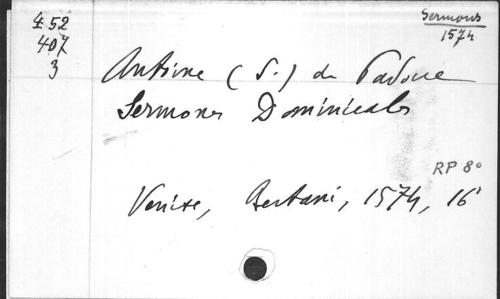 £52
407
3
Sermons
1574
Antoine (S.) de Padoue
Sermones Dominicales
RP 8°
Venise, Bertani, 1574, 16°